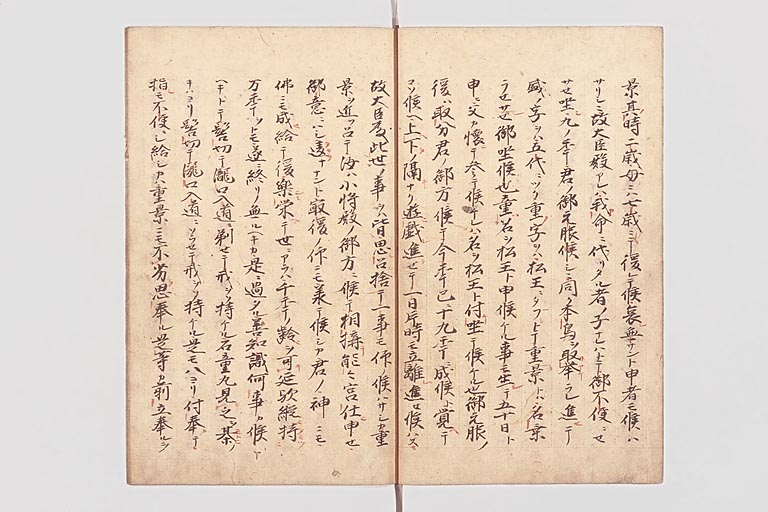 景其時二歳母ニハ七歳ニシテ後レテ候哀無ナント申者モ候ハ
サリシニ故大臣殿アレハ我命ニ代リタル者ノ子ナレハトテ御不便ニセ
サセ坐九ノ年君ノ御元服候シニ同ク本鳥ヲ取挙ラレ進テ
盛ノ字ヲハ五代ニツク重字ヲハ松王ニタフトテ重景トハ名景
ラセサセ御坐候也童名ヲ松王ト申候ケル事モ生テ五十日ト
申ニ父カ懐テ参テ候ケレハ名ヲ松王ト付坐テ候ケル也御元服ノ
後ハ取分君ノ御方ニ候テ今年已ニ十九年ニ成候ト覚テ
コソ候ヘ上下ノ隔ナク遊戯進セテ一日片時モ立離進セ候ハス
故大臣殿此世ノ事ヲハ皆思召捨テ一事モ仰ノ候ハサリシカ重
景ヲ近ク召テ汝ハ小将殿ノ御方ニ候テ相構能々宮仕申セ
御意ニハシ違ナナント最後ノ仰ニモ承テ候シカ君ノ神ニモ
仏ニモ成給テ後楽栄テ世ニアラハ千年ノ齢ヲ可延歟縦持
万年ヲトモ遂ニ終リノ無ルヘキカ是ニ過タル善知識何事カ候ヘ
キトテ髻切テ滝口入道ニ剃セテ戒ヲソ持ケル石童丸見之基ノ
キハヨリ髻切テ滝口入道ニソラセテ戒ヲソ持ケル是モ八ヨリ付奉テ
指モ不便ニシ給シカハ重景ニモ不劣思奉ル是等カ前立奉ルヲ